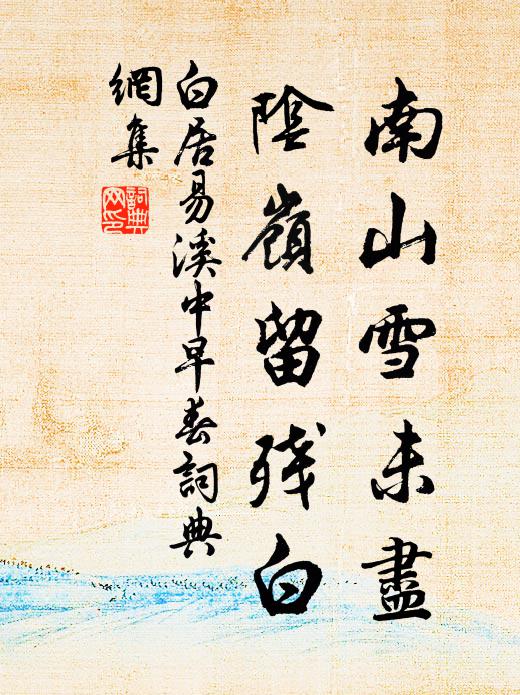 南山雪未盡
陰嶺留残白
白居易溪中早春詞典
網集
詞典
网印